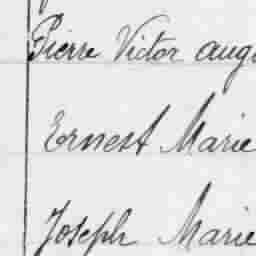 Pierre Victor aug
Ernest Marie
Joseph Marie